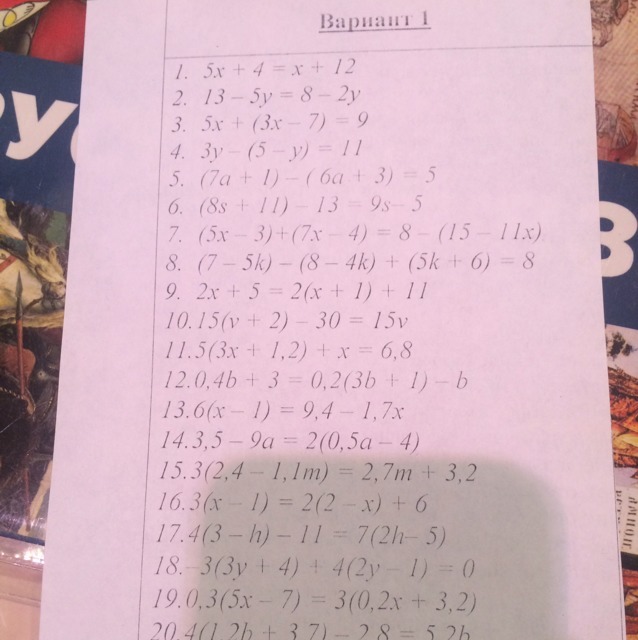 Вариант 1
1. 5x + 4 = x + 12
2. 13 – 5y = 8 – 2y
3. 5x + (3x – 7) = 9
4. 3y – (5 – y) = 11
5. (7a + 1) – ( 6a + 3) = 5
6. (8s + 11) – 13 = 9s– 5
7. (5x – 3)+(7x – 4) = 8 – (15 – 11x)
8. (7 – 5k) – (8 – 4k) + (5k + 6) = 8
9. 2x + 5 = 2(x + 1) + 11
10.15(v + 2) – 30 = 15v
11.5(3x + 1,2) + x = 6,8
12.0,4b + 3 = 0,2(3b + 1) – b
13.6(x – 1) = 9,4 – 1,7x
14.3,5 – 9a = 2(0,5a – 4)
15.3(2,4 – 1,1m) = 2,7m + 3,2
16.3(x – 1) = 2(2 – x) + 6
17.4(3 – h) – 11 = 7(2h– 5)
18.–3(3y + 4) + 4(2y – 1) = 0
19.0,3(5x – 7) = 3(0,2x + 3,2)
20.4(1,2b + 3,7) – 2,8 = 5,2b
РУ
В